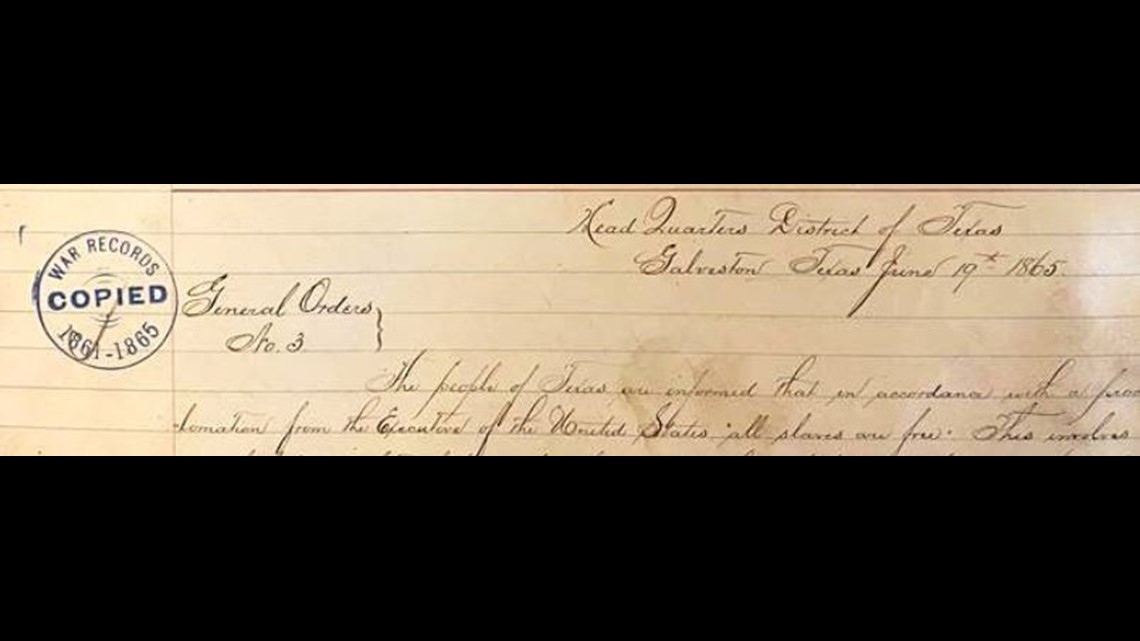 Head Quarters District of Texas
Galveston Texas June 19th 1865.
WAR RECORDS
COPIED
1861-1865
General Orders
No. 3
The people of Texas are informed that in accordance with a proc
-lamation from the Executive of the United States "all slaves are free." This involves